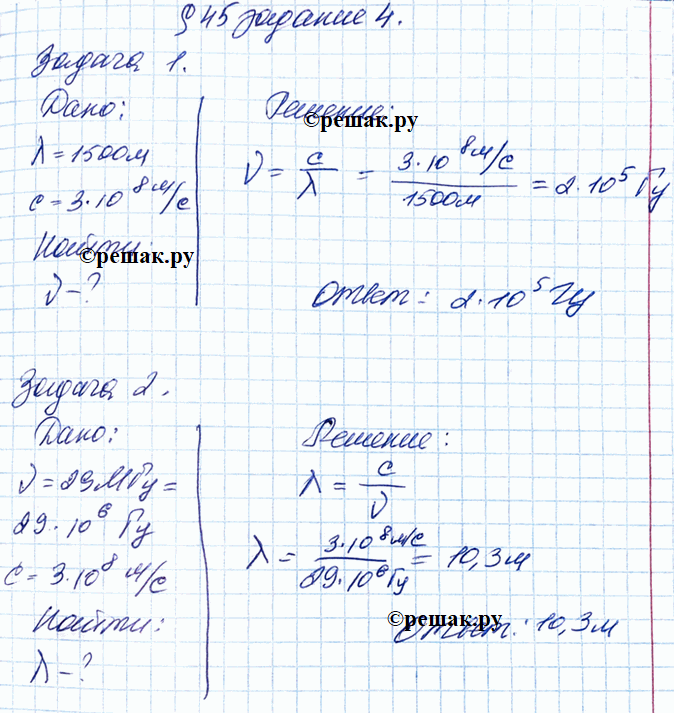 § 45 задание 4.
Задача 1.
Дано:
λ = 1500м
c = 3·10⁸ м/с
Найти:
ν - ?
Решение:
©решак.ру
ν = c/λ = 3·10⁸ м/с / 1500м = 2·10⁵ Гц
©решак.ру
Ответ: 2·10⁵ Гц
Задача 2.
Дано:
ν = 29МГц =
29·10⁶ Гц
c = 3·10⁸ м/с
Найти:
λ - ?
Решение:
λ = c/ν
λ = 3·10⁸ м/с / 29·10⁶ Гц = 10,3м
©решак.ру
Ответ: 10,3м